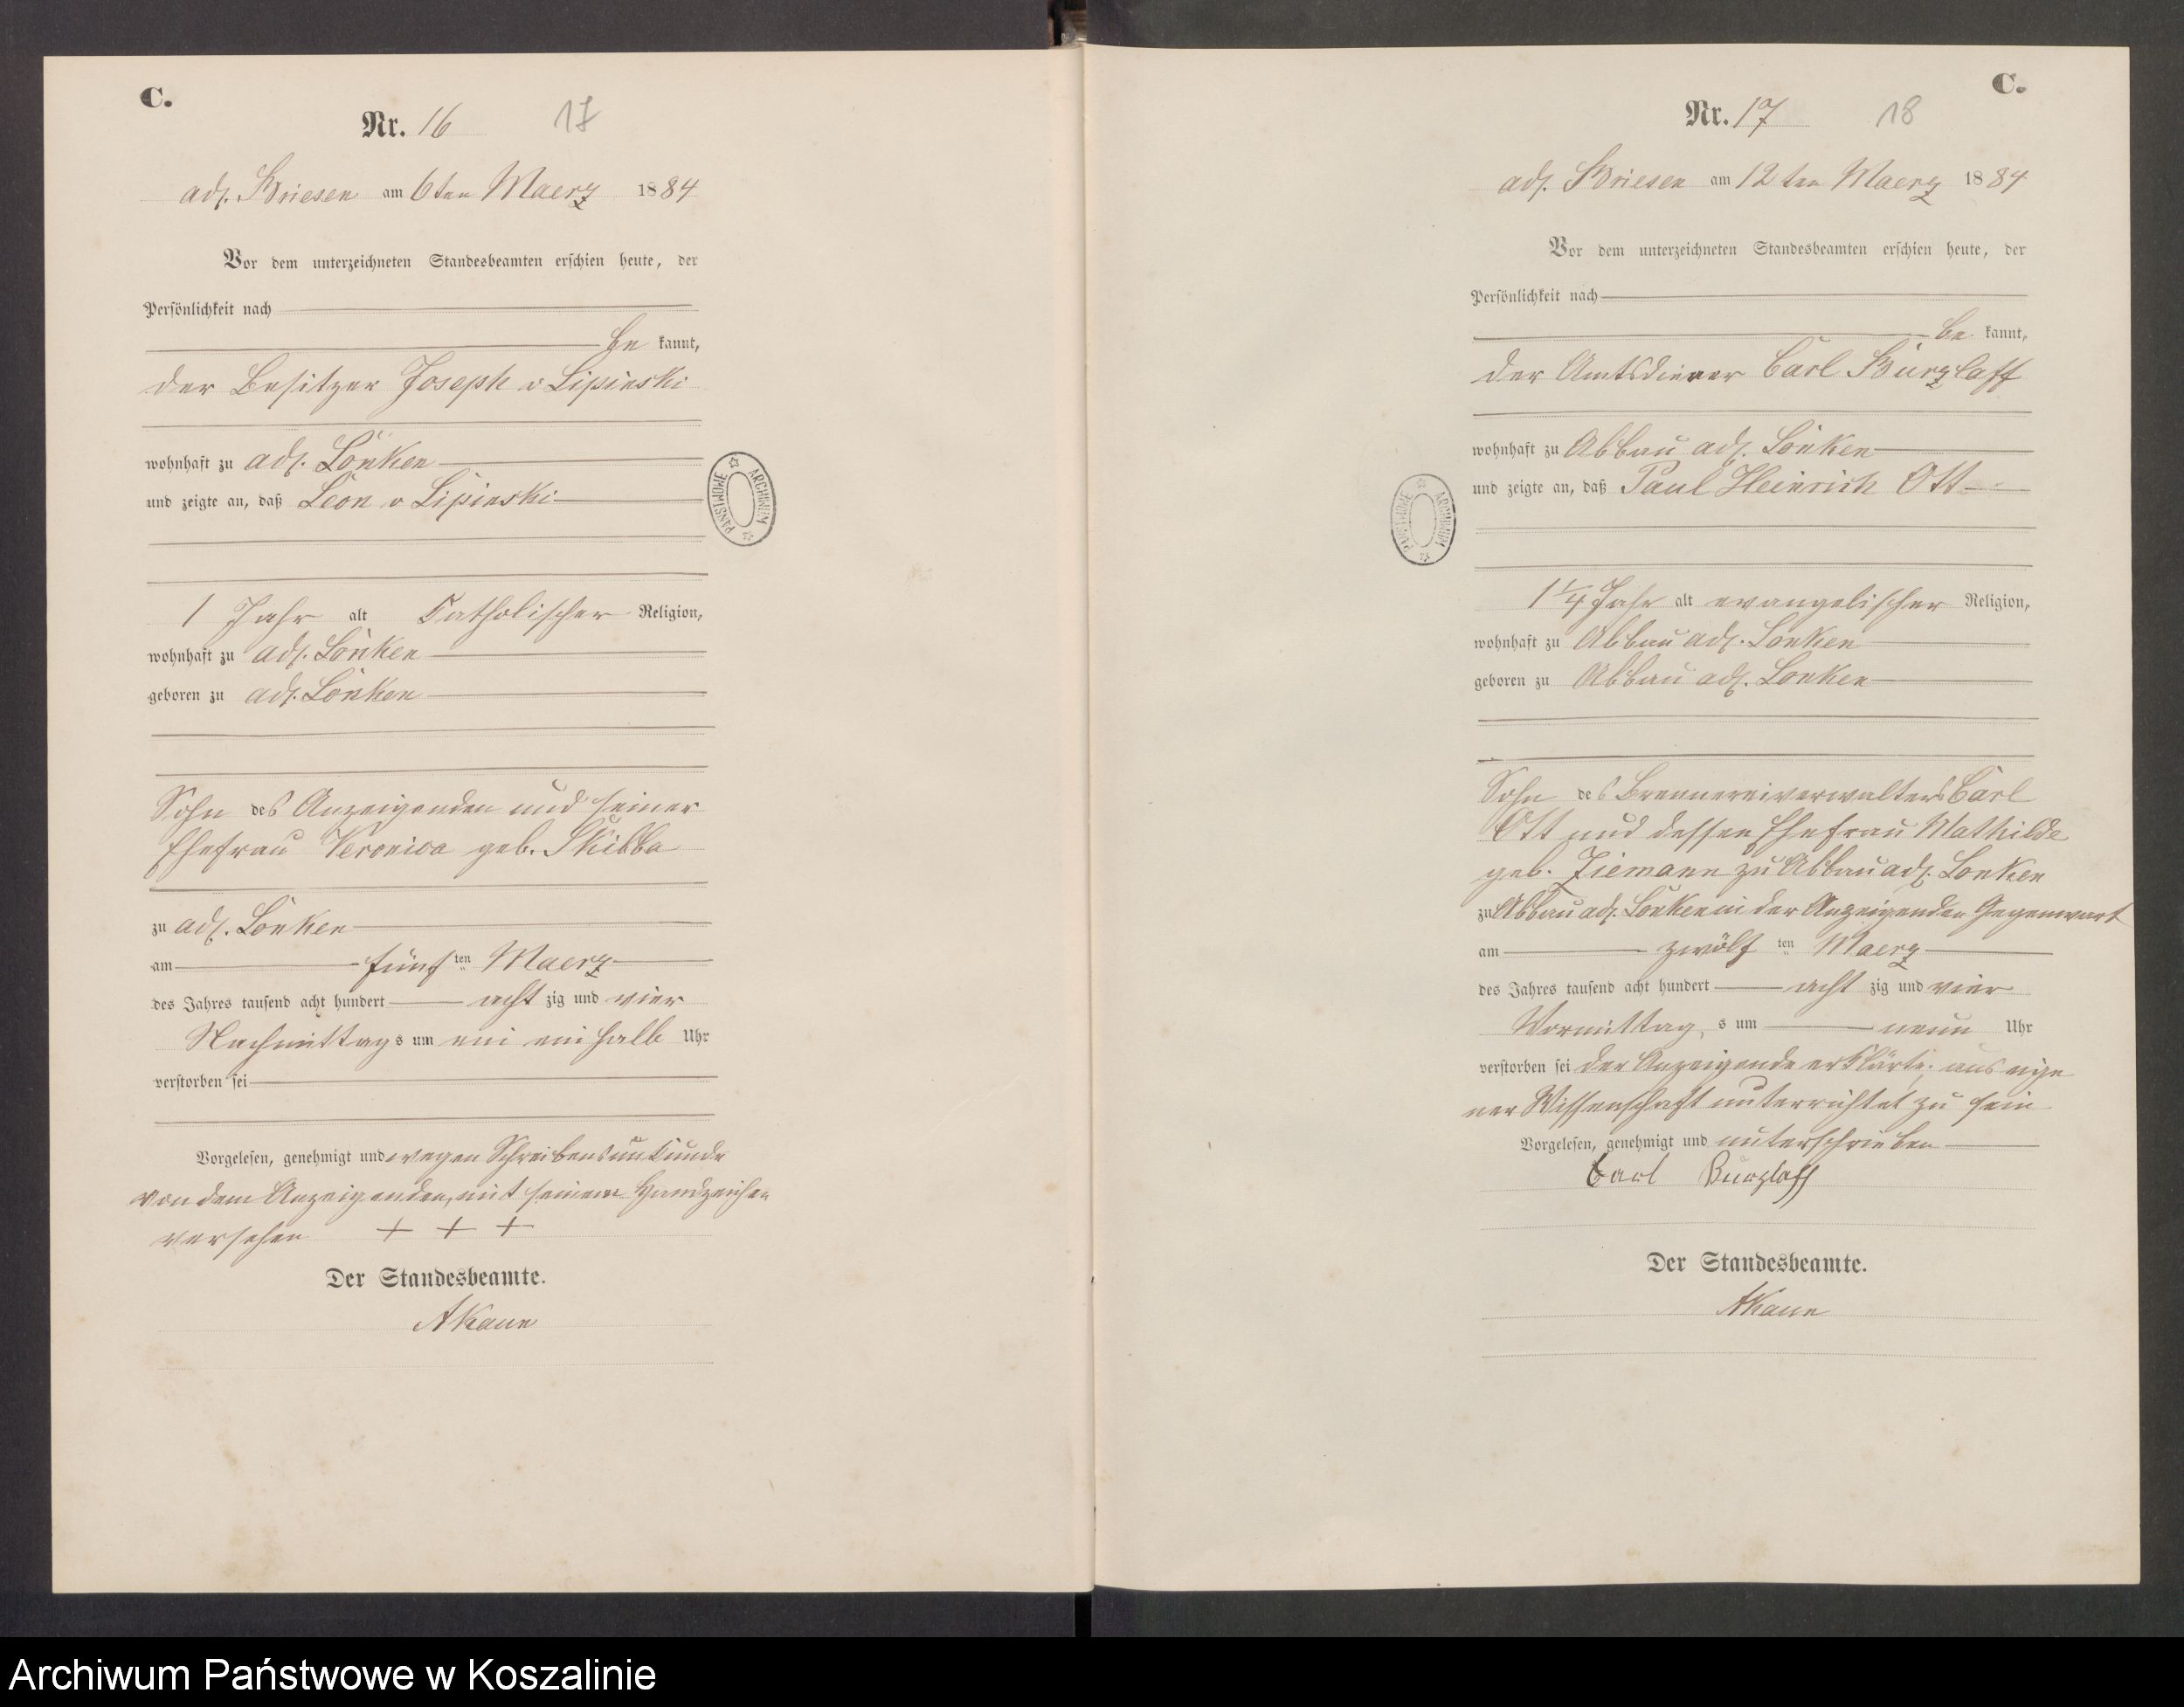 C.
Nr. 16 17
adl. Briesen am 6ten Maerz 1884
Vor dem unterzeichneten Standesbeamten erschien heute, der
Persönlichkeit nach
be kannt,
der Besitzer Joseph v Lipinski
wohnhaft zu adl. Lonken
und zeigte an, daß Leon v Lipinski
1 Jahr alt Katholischer Religion,
wohnhaft zu adl. Lonken
geboren zu adl. Lonken
Sohn des Anzeigenden und seiner
Ehefrau Veronica geb. Skibba
zu adl. Lonken
am fünf ten Maerz
des Jahres tausend acht hundert acht zig und vier
Nachmittags um ein ein halb Uhr
verstorben sei
Vorgelesen, genehmigt und wegen Schreibensunkunde
von dem Anzeigenden, mit seinem Handzeichen
versehen + + +
Der Standesbeamte.
AKaun
ARCHIWUM PAŃSTWOWE
C.
Nr. 17 18
adl. Briesen am 12ten Maerz 1884
Vor dem unterzeichneten Standesbeamten erschien heute, der
Persönlichkeit nach
be kannt,
der Amtsdiener Carl Burzlaff
wohnhaft zu Abbau adl. Lonken
und zeigte an, daß Paul Heinrich Ott
1 1/4 Jahr alt evangelischer Religion,
wohnhaft zu Abbau adl. Lonken
geboren zu Abbau adl. Lonken
Sohn des Brennereiverwalters Carl
Ott und dessen Ehefrau Mathilde
geb. Ziemann zu Abbau adl. Lonken
zu Abbau adl. Lonken in der Anzeigenden Gegenwart
am zwölf ten Maerz
des Jahres tausend acht hundert acht zig und vier
Vormittag s um neun Uhr
verstorben sei der Anzeigende erklärte, aus eige
ner Wissenschaft unterrichtet zu sein
Vorgelesen, genehmigt und unterschrieben
Carl Burzlaff
Der Standesbeamte.
AKaun
ARCHIWUM PAŃSTWOWE
Archiwum Państwowe w Koszalinie